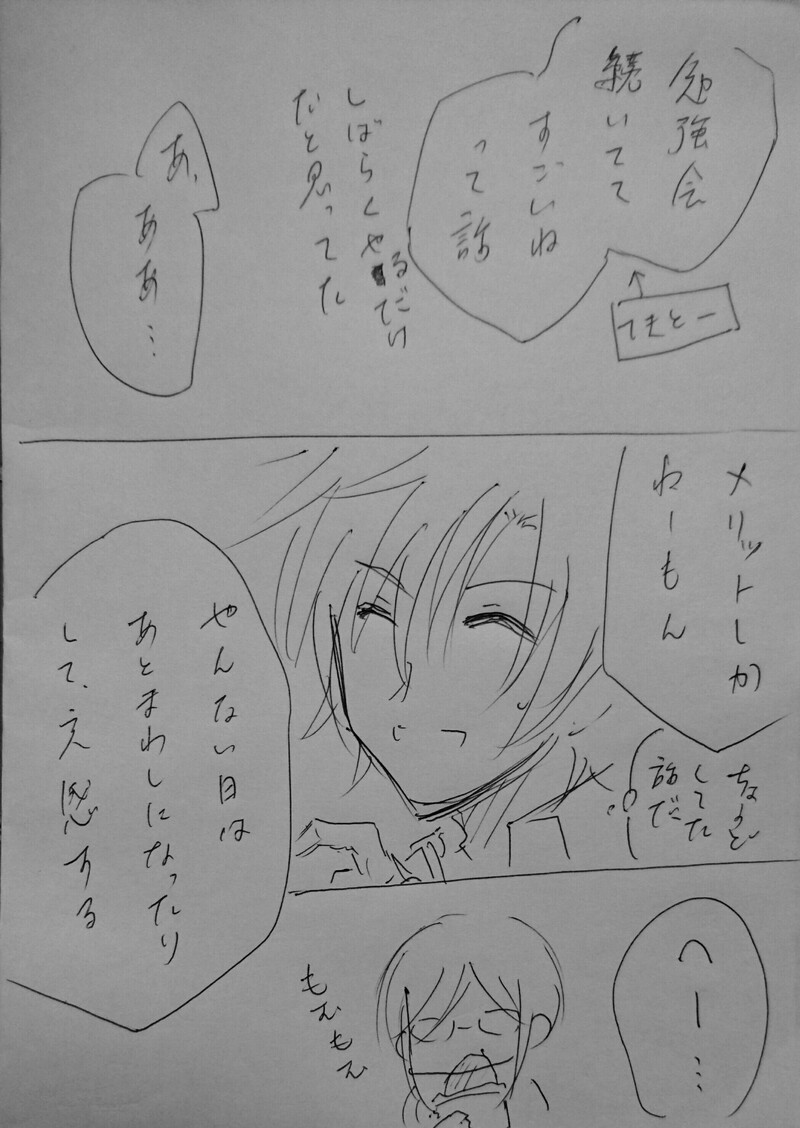 勉強会
続いてて
すごいね
って話
てきとー
しばらくやるだい
だと思ってた
あ、
ああ…
メリットしか
ねーもん
ちょうど
してた
話だ
やんない日は
あとまわしになったり
して、え
する
へー…
もむもむ